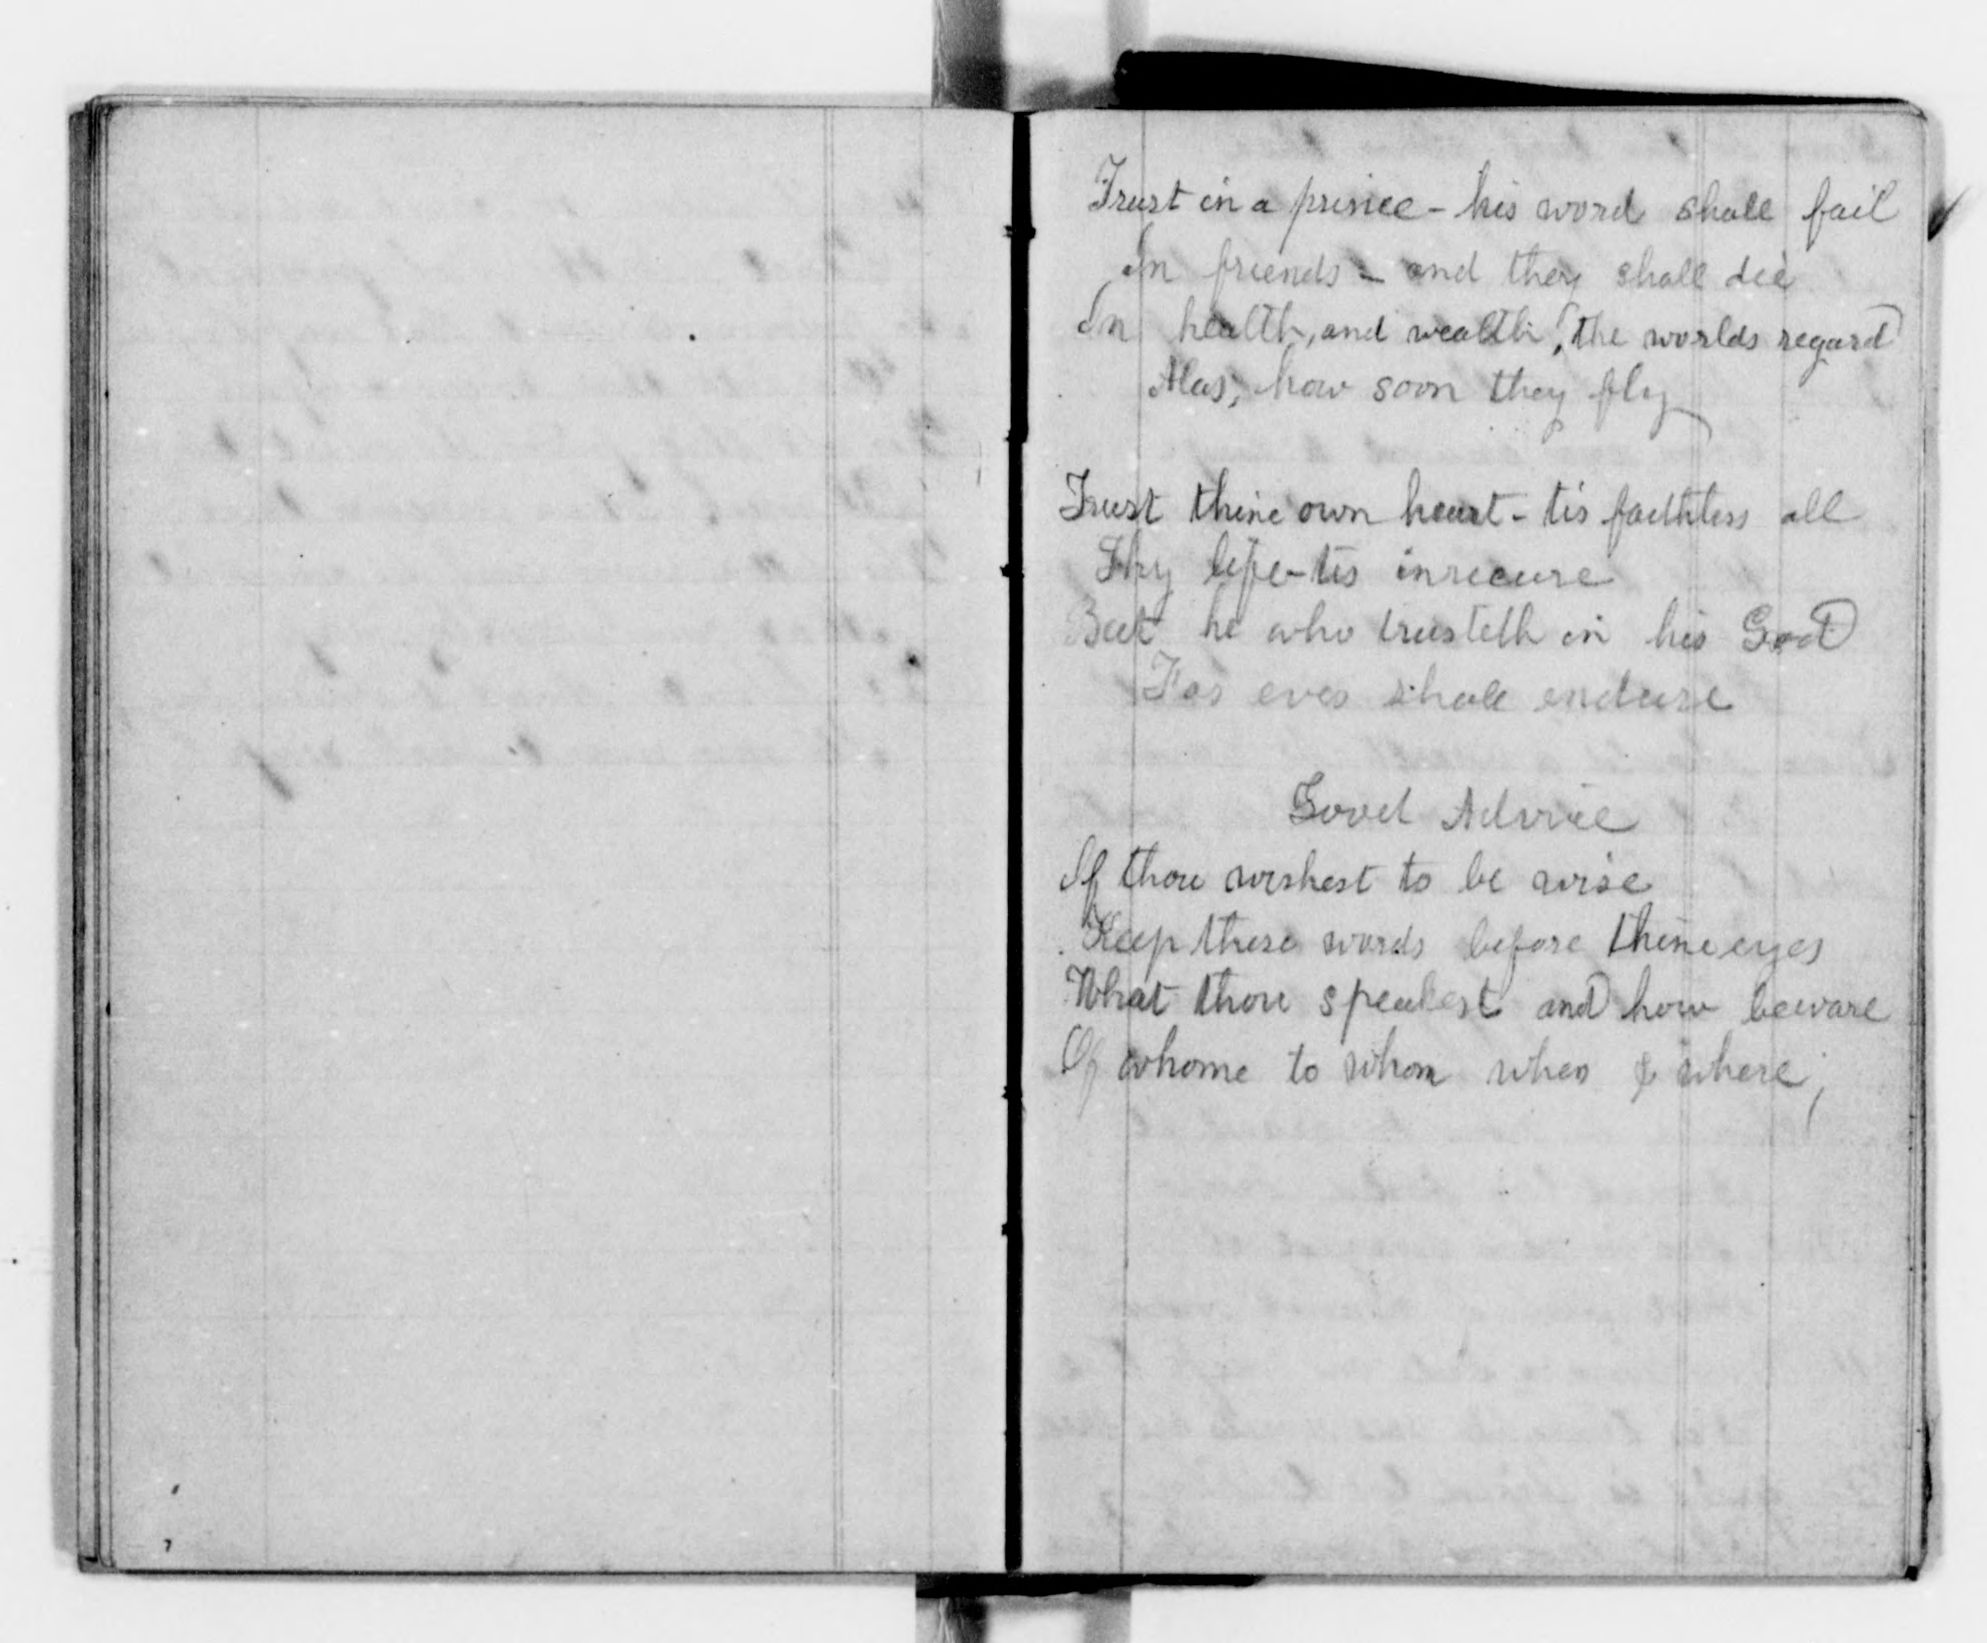 Trust in a prince - his word shall fail
In friends - and they shall die
In health, and wealth, the worlds regard
Alas, how soon they fly
Trust thine own heart - tis faithless all
Thy life - tis insecure
But he who trusteth in his God
For ever shall endure
Good Advice
If thou wishest to be wise
Keep these words before thine eyes
What thou speakest and how beware
Of whome to whom when & where,